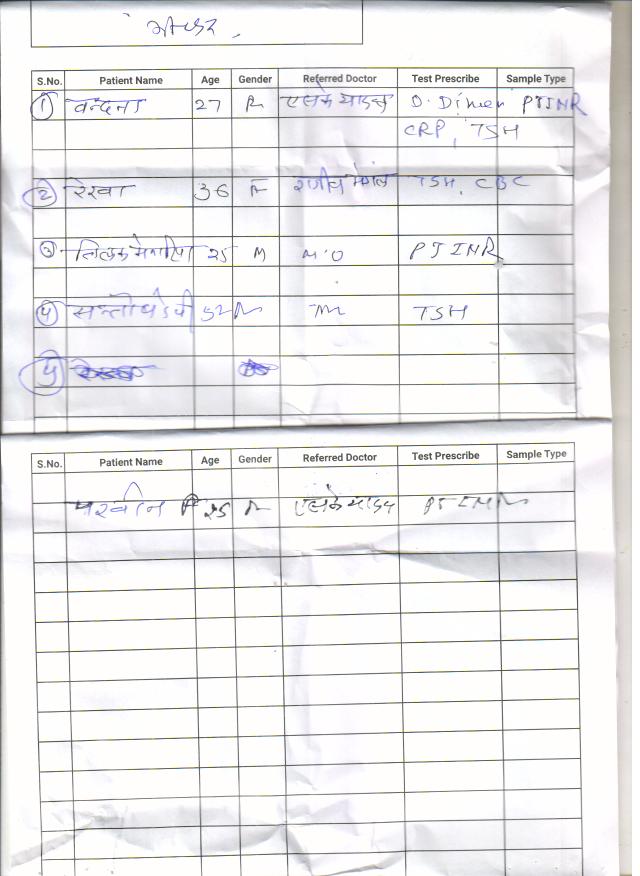 S.No. Patient Name Age Gender Referred Doctor Test Prescribe Sample Type
1 वन्दना 27 F एलके यादव D. Dimer PTINR
CRP, TSH
2 रेखा 36 F TSH, CBC
3 25 M M.O PTINR
4 सन्तोष देवी 52 TSH
5
S.No. Patient Name Age Gender Referred Doctor Test Prescribe Sample Type
परवीन 25 F एलके यादव